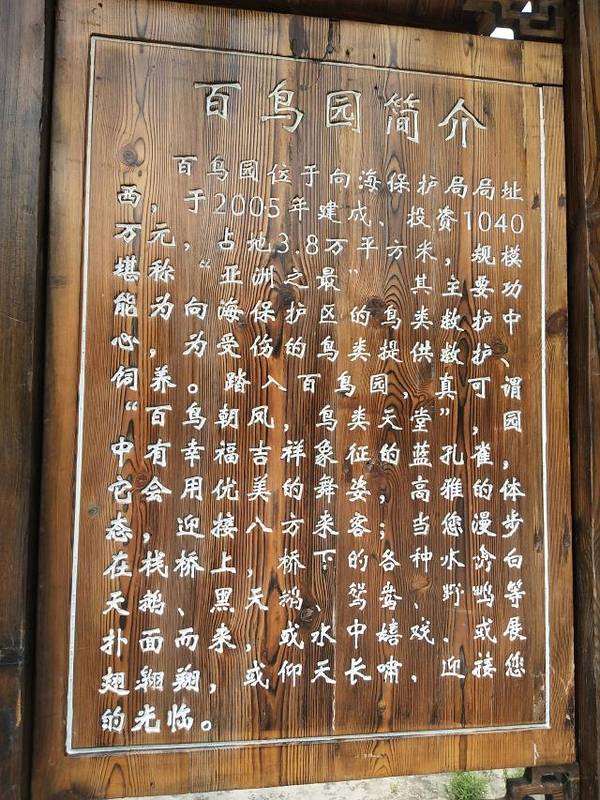 百鸟园简介
百鸟园位于向海保护局局址
西,于2005年建成、投资1040
万元,占地3.8万平方米,规模
堪称“亚洲之最”其主要功
能为,向海保护区的鸟类救护中
心,为受伤的鸟类提供救护、
饲养。踏入百鸟园,真可谓
“百鸟朝凤,鸟类天堂”,园
中有幸福吉祥的象征蓝孔雀,
它会用优美的舞姿,高雅的体
态,迎接八方来客;当您漫步
在栈桥上,桥下的各种水禽白
天鹅、黑天鹅、鸳鸯、野鸭等
扑面而来,或水中嬉戏、或展
翅翱翔,或仰天长啸,迎接您
的光临。